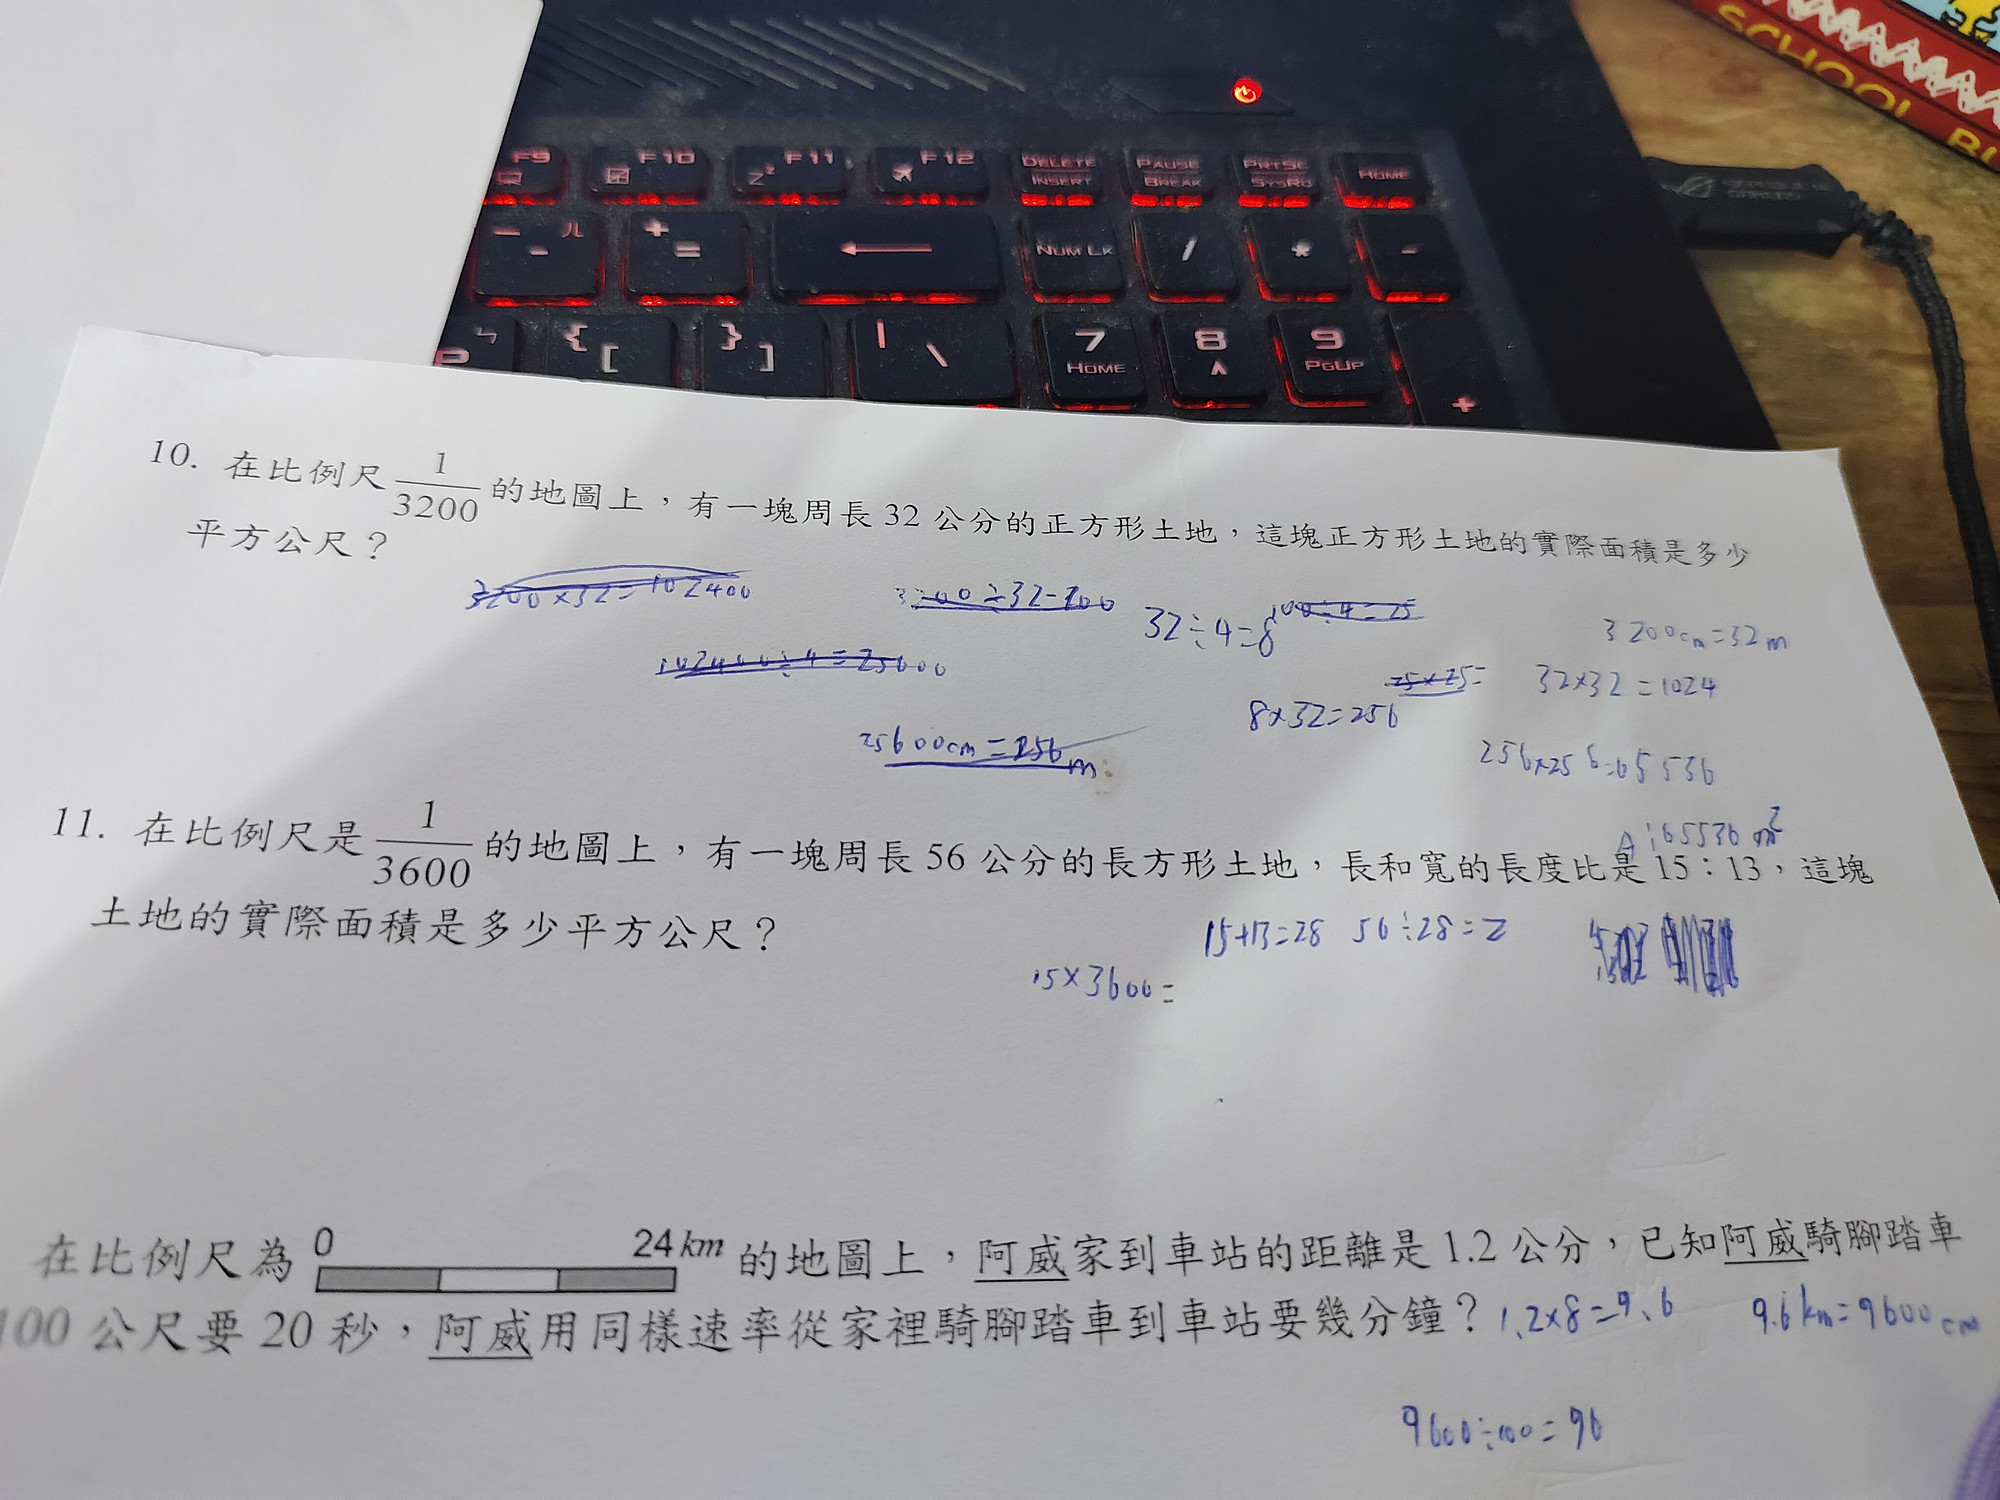 SCHOOL BU
F9 F10 F11 F12 DELETE INSERT PAUSE BREAK PRTSC SYSRQ HOME
- ㄦ + = NUM LK / * -
P ㄣ { [ } ] | \ 7 HOME 8 9 PGUP +
10. 在比例尺 1/3200 的地圖上，有一塊周長 32 公分的正方形土地，這塊正方形土地的實際面積是多少
平方公尺？
3200×32=102400
3200÷32=100
32÷4=8
100÷4=25
3200cm=32m
102400÷4=25600
25×25=
32×32=1024
8×32=256
25600cm=256m
256×256=65536
A:65536m²
11. 在比例尺是 1/3600 的地圖上，有一塊周長 56 公分的長方形土地，長和寬的長度比是 15：13，這塊
土地的實際面積是多少平方公尺？
15+13=28 56÷28=2
15×3600=
在比例尺為 0 24 km 的地圖上，阿威家到車站的距離是 1.2 公分，已知阿威騎腳踏車
100 公尺要 20 秒，阿威用同樣速率從家裡騎腳踏車到車站要幾分鐘？
1.2×8=9.6 9.6km=9600cm
9600÷100=96